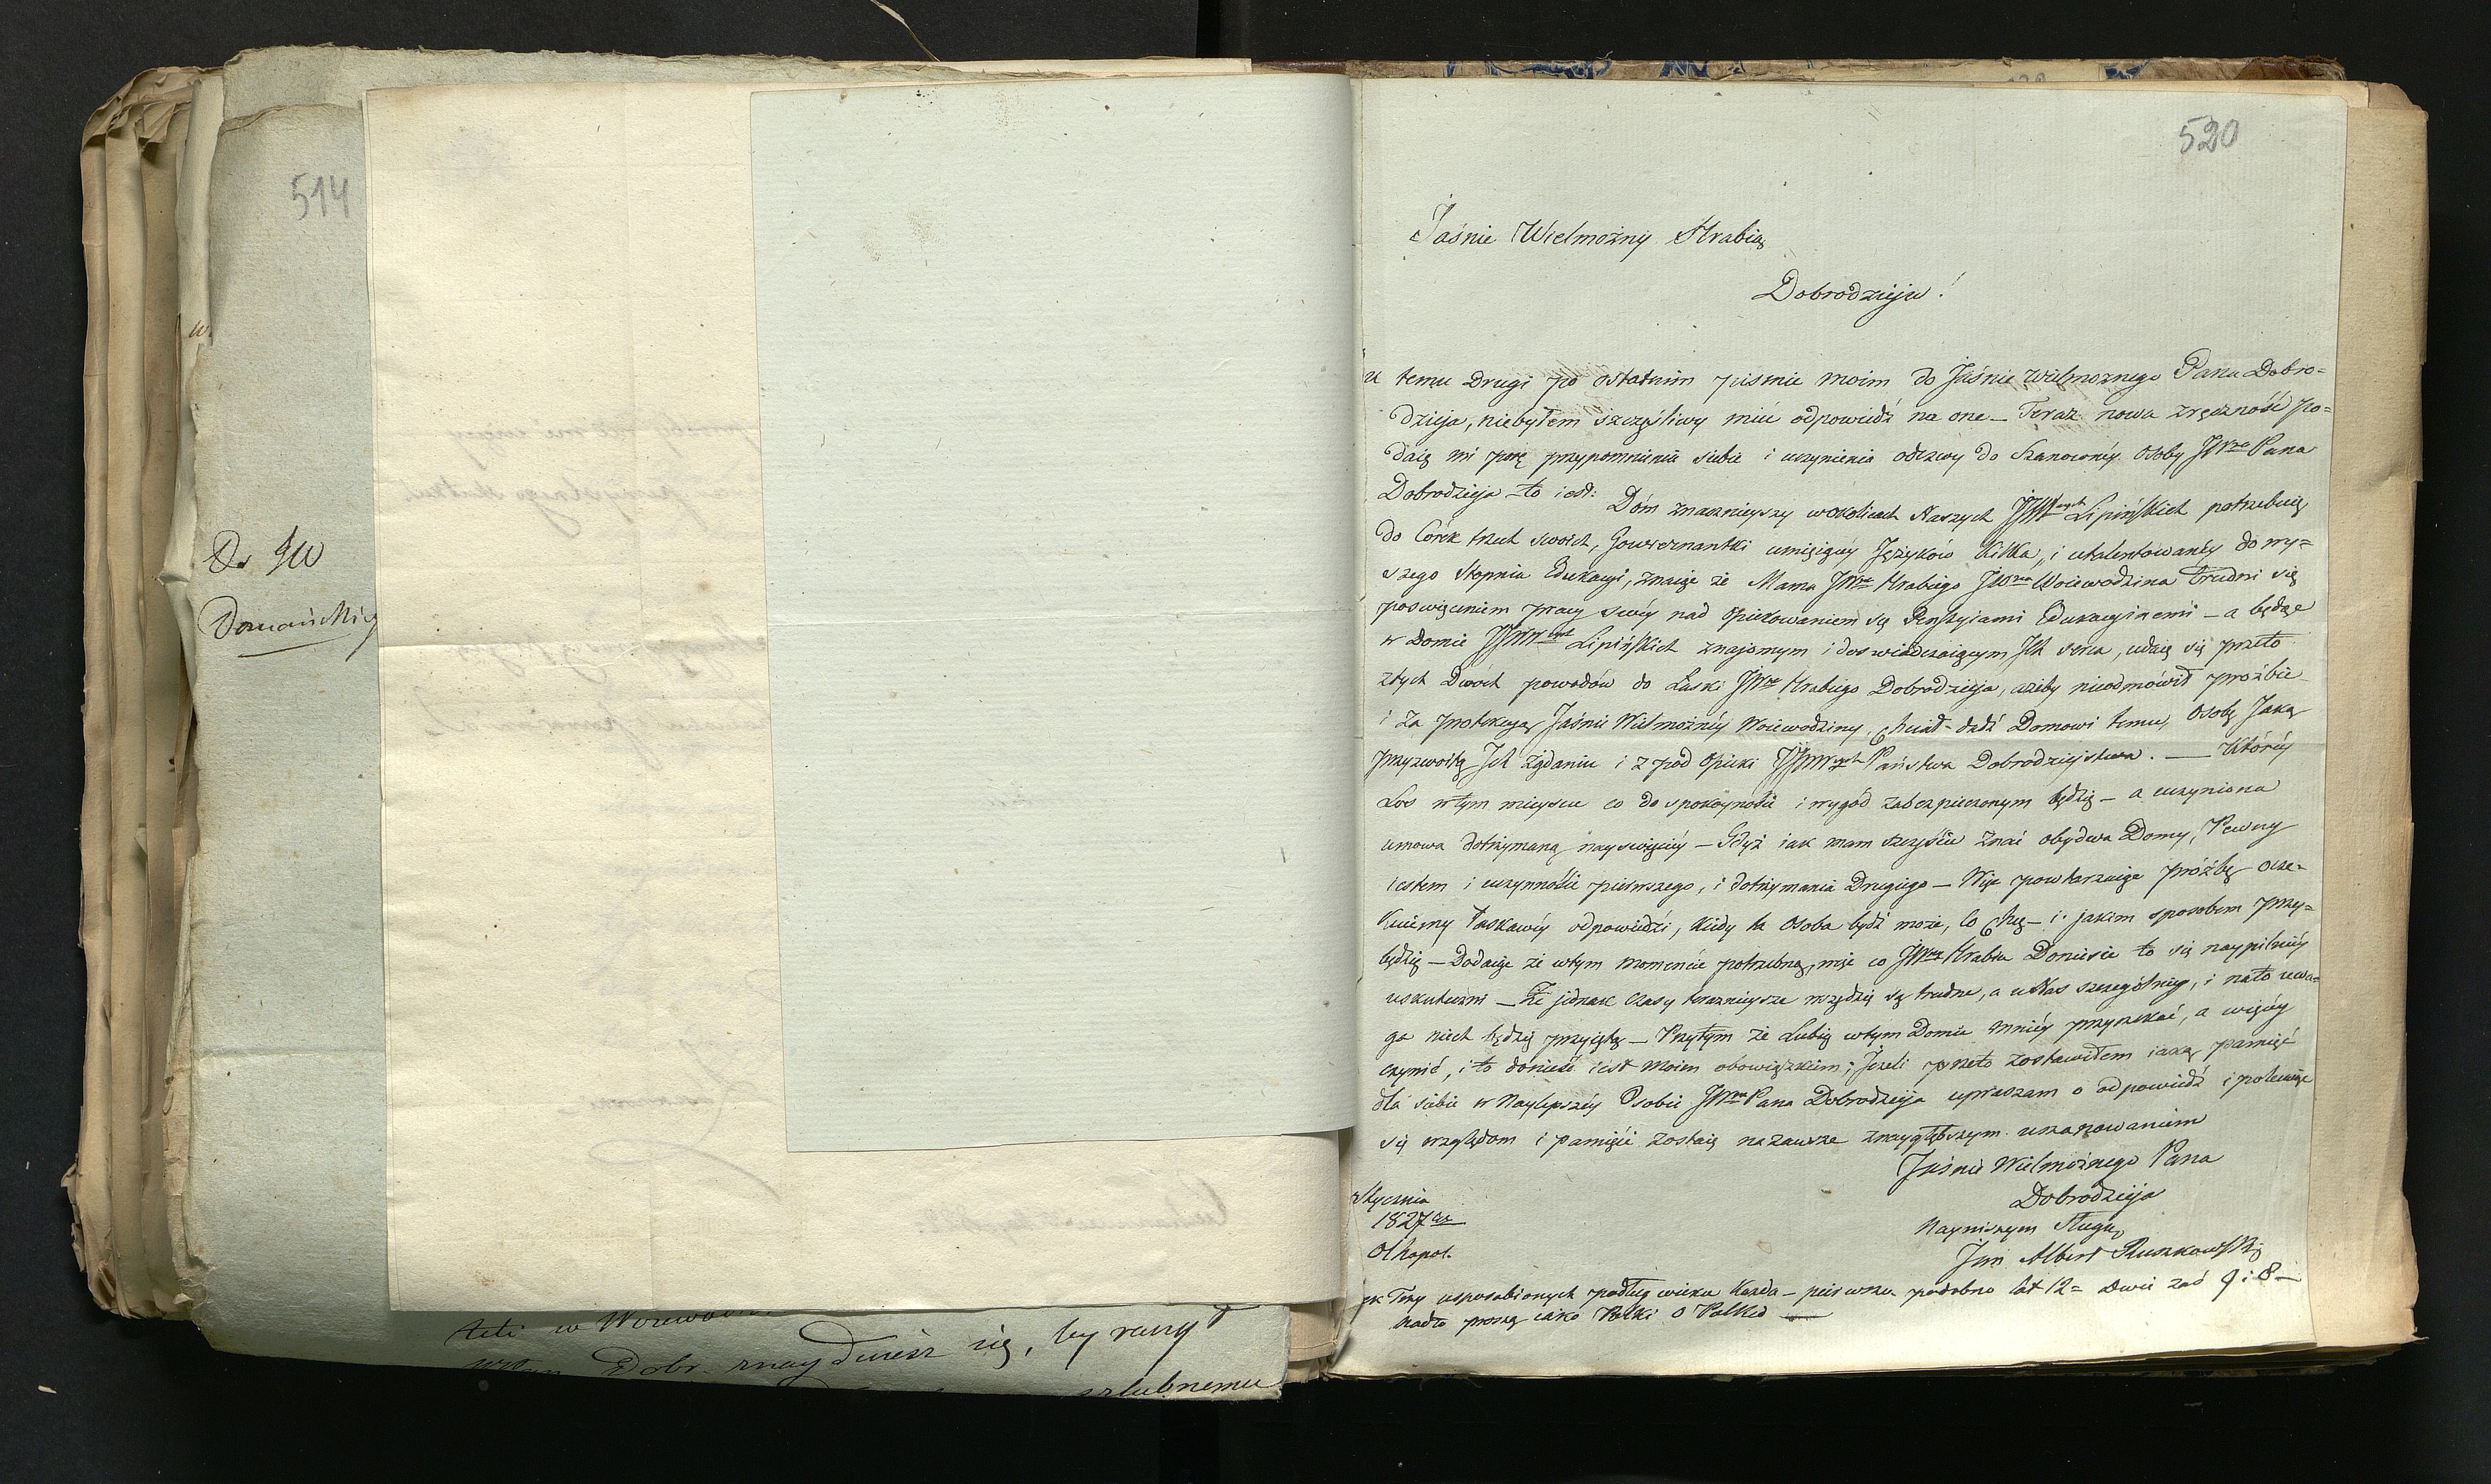 514
Do JW
Domańskiey
teti w Worewo
Dobr. znay duiesz się, by raczy
szlubnemu
520
Jaśnie Wielmożny Hrabio
Dobrodzieju!
temu Drugi po ostatnim pismie moim do Jaśnie Wielmoznego Pana Dobro=
dzieja, niebyłem szczęśliwy mieć odpowiedź na one — Teraz nowa zręczność po=
daię mi porę przypomnienia siebie i uczynienia odezwy do Szanownéy Osoby JWgo Pana
Dobrodzieja - to iest: Dóm znacznieyszy wokolicach Naszych JJWWnych Lipińskich potrzebuię
do Córek trzech swoich, Gouwernantki umiejącey Języków kilka, i utalentowanéy do wy=
szego Stopnia Edukacyi, znaiąc że Mama JWgo Hrabiego JWna Woiewodzina trudni się
poswięceniem pracy swéy nad opiekowaniem się Pensyiami Edukacyinemi - a będąc
w Domie JJWWnych Lipińskich znajomym i doswiadczaiącym Ich serca, udaię się przeto
ztych Dwóch powodów do Łaski JWgo Hrabiego Dobrodzieja, ażeby nieodmówił prożbie
i za protekcyą Jaśnie Wielmożnéy Woiewodziny, Chciał dadź Domowi temu, Osobę Jaką
przyzwoitą Ich żądaniu i z pod Opieki JJWWnych Państwa Dobrodziejstwa. — Któréy
Los wtym mieyscu co do spokoyności i wygód zabezpieczonym będzię — a uczyniona
umowa dotrzymaną nayswięciéy — Gdyż iak mam szczęście znać obydwa Domy, Pewny
iestem i uczynności pierwszego, i dotrzymania Drugiego — Więc powtarzaiąc próźbę ocze=
kuiemy łaskawéy odpowiedzi, kiedy ta Osoba bydź może, Co Chcę — i jakim sposobem przy=
będzię — Dodaiąc że wtym momencie potrzebną, więc co JWny Hrabia Doniesie to się naypilniéy
uskuteczni — Że jednak czasy teraznieysze wszędzię są trudne, a u Nas szczególniey, i nato uwa=
ga niech będzię przyiętą — Przytym że Lubią wtym Domie mniéy przyrzekać, a więcéy
czynić, i to donieść iest moim obowiązkiem; Jeżeli przeto zostawiłem iaką pamięć
dla siebie w Naylepszéy Osobie JWgo Pana Dobrodzieja upraszam o odpowiedź i polecaiąc
się względom i pamięci zostaię nazawsze znaygłębszym uszanowaniem
Jaśnie Wielmożnego Pana
Dobrodzieja
Nayniższym Sługą
Jan Albert Ruszkowski
Stycznia
1827
Olhopol.
Trzy usposobionych podług wieku Każda — pierwsza podobno lat 12 = Dwie zaś 9 i 8 —
Nadto proszą iako Polki o Polkę —